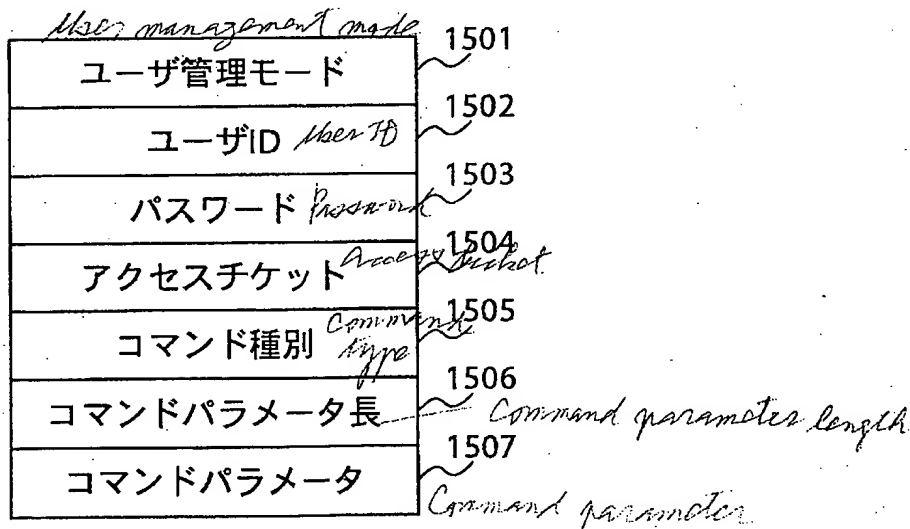 User management mode
1501
ユーザ管理モード
1502
ユーザID User ID
1503
パスワード Password
1504
アクセスチケット Access ticket
1505
コマンド種別 Command type
1506
コマンドパラメータ長 Command parameter length
1507
コマンドパラメータ
Command parameter